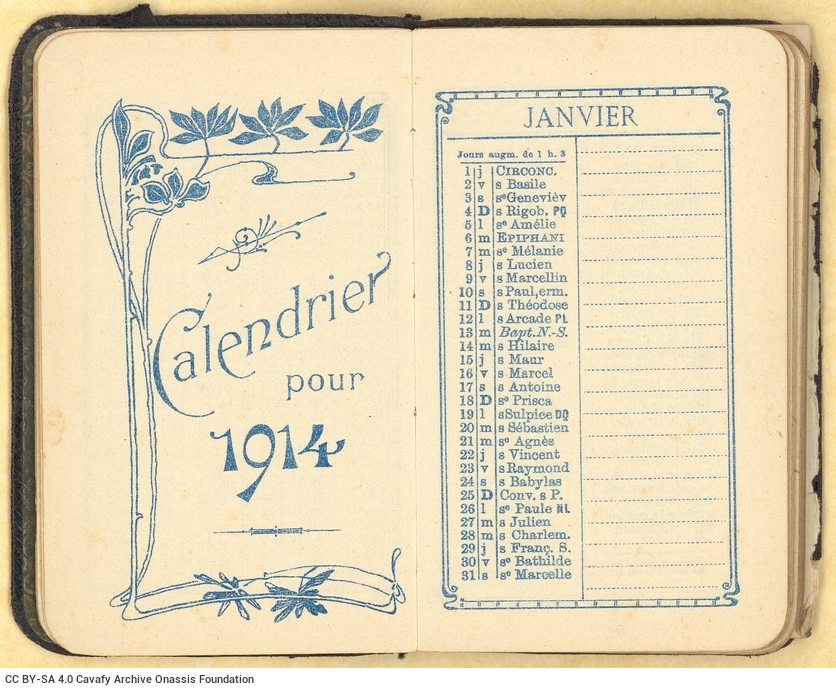 Calendrier
pour
1914
JANVIER
Jours augm. de 1 h. 3
1 j CIRCONC.
2 v s Basile
3 s sᵉ Genevièv
4 D s Rigob. PQ
5 l sᵉ Amélie
6 m EPIPHANI
7 m sᵉ Mélanie
8 j s Lucien
9 v s Marcellin
10 s s Paul, erm.
11 D s Théodose
12 l s Arcade PL
13 m Bapt. N.-S.
14 m s Hilaire
15 j s Maur
16 v s Marcel
17 s s Antoine
18 D sᵉ Prisca
19 l s Sulpice DQ
20 m s Sébastien
21 m sᵉ Agnès
22 j s Vincent
23 v s Raymond
24 s s Babylas
25 D Conv. s P.
26 l sᵉ Paule NL
27 m s Julien
28 m s Charlem.
29 j s Franç. S.
30 v sᵉ Bathilde
31 s sᵉ Marcelle
CC BY-SA 4.0 Cavafy Archive Onassis Foundation